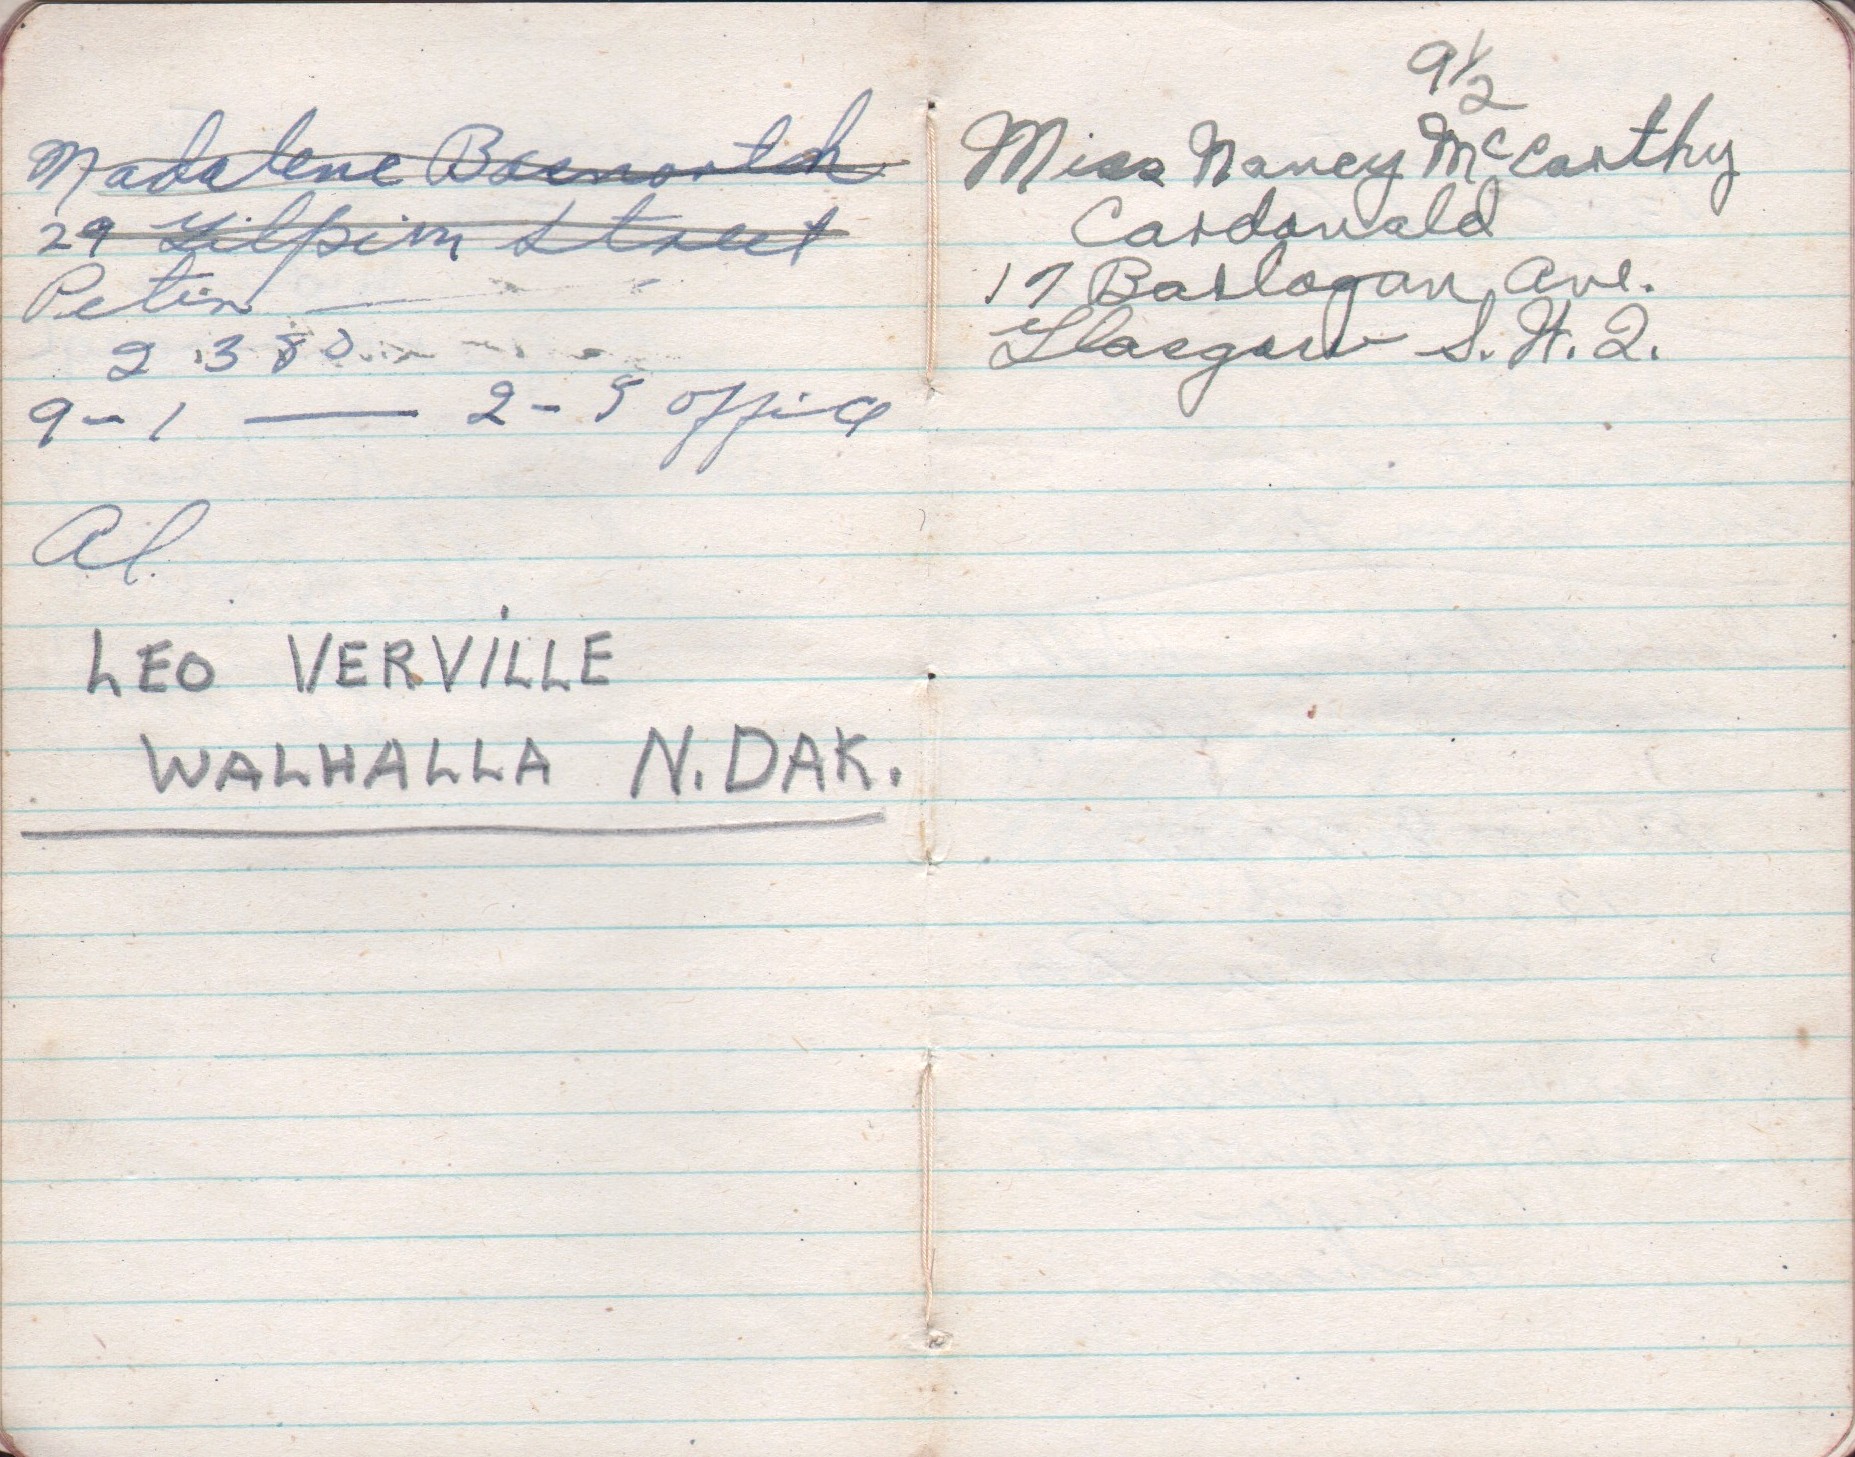 Madalene Bosnortch
29 Gilpin Street
Petin
2 380
9-1 — 2-5 office
Al.
LEO VERVILLE
WALHALLA N.DAK.
9 1/2
Miss Nancy McCarthy
Cardonald
17 Barlogan Ave.
Glasgow S.W.2.